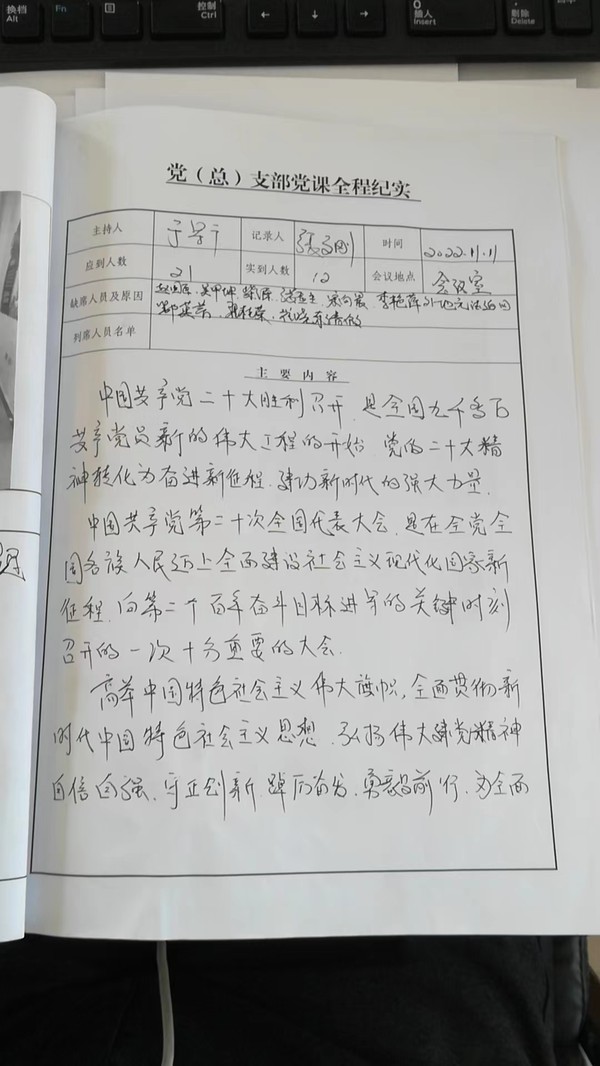 换档 Alt
Fn
控制 Ctrl
←
↓
→
0 插入
. 删除 Delete
党（总）支部党课全程纪实
主持人 记录人 时间 2022.11.11
应到人数 21 实到人数 12 会议地点 会议室
缺席人员及原因
列席人员名单
主要内容
中国共产党二十大胜利召开，是全国九千多万
共产党员新的伟大工程的开始，党的二十大精
神转化为奋进新征程，建功新时代的强大力量。
中国共产党第二十次全国代表大会，是在全党全
国各族人民迈上全面建设社会主义现代化国家新
征程，向第二个百年奋斗目标进军的关键时刻
召开的一次十分重要的大会。
高举中国特色社会主义伟大旗帜，全面贯彻新
时代中国特色社会主义思想，弘扬伟大建党精神
自信自强、守正创新、踔厉奋发、勇毅前行，为全面